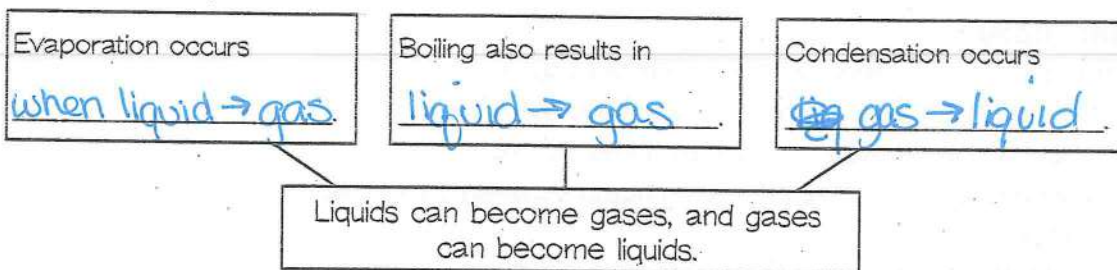 Evaporation occurs
when liquid → gas.
Boiling also results in
liquid → gas.
Condensation occurs
gas → liquid.
Liquids can become gases, and gases
can become liquids.